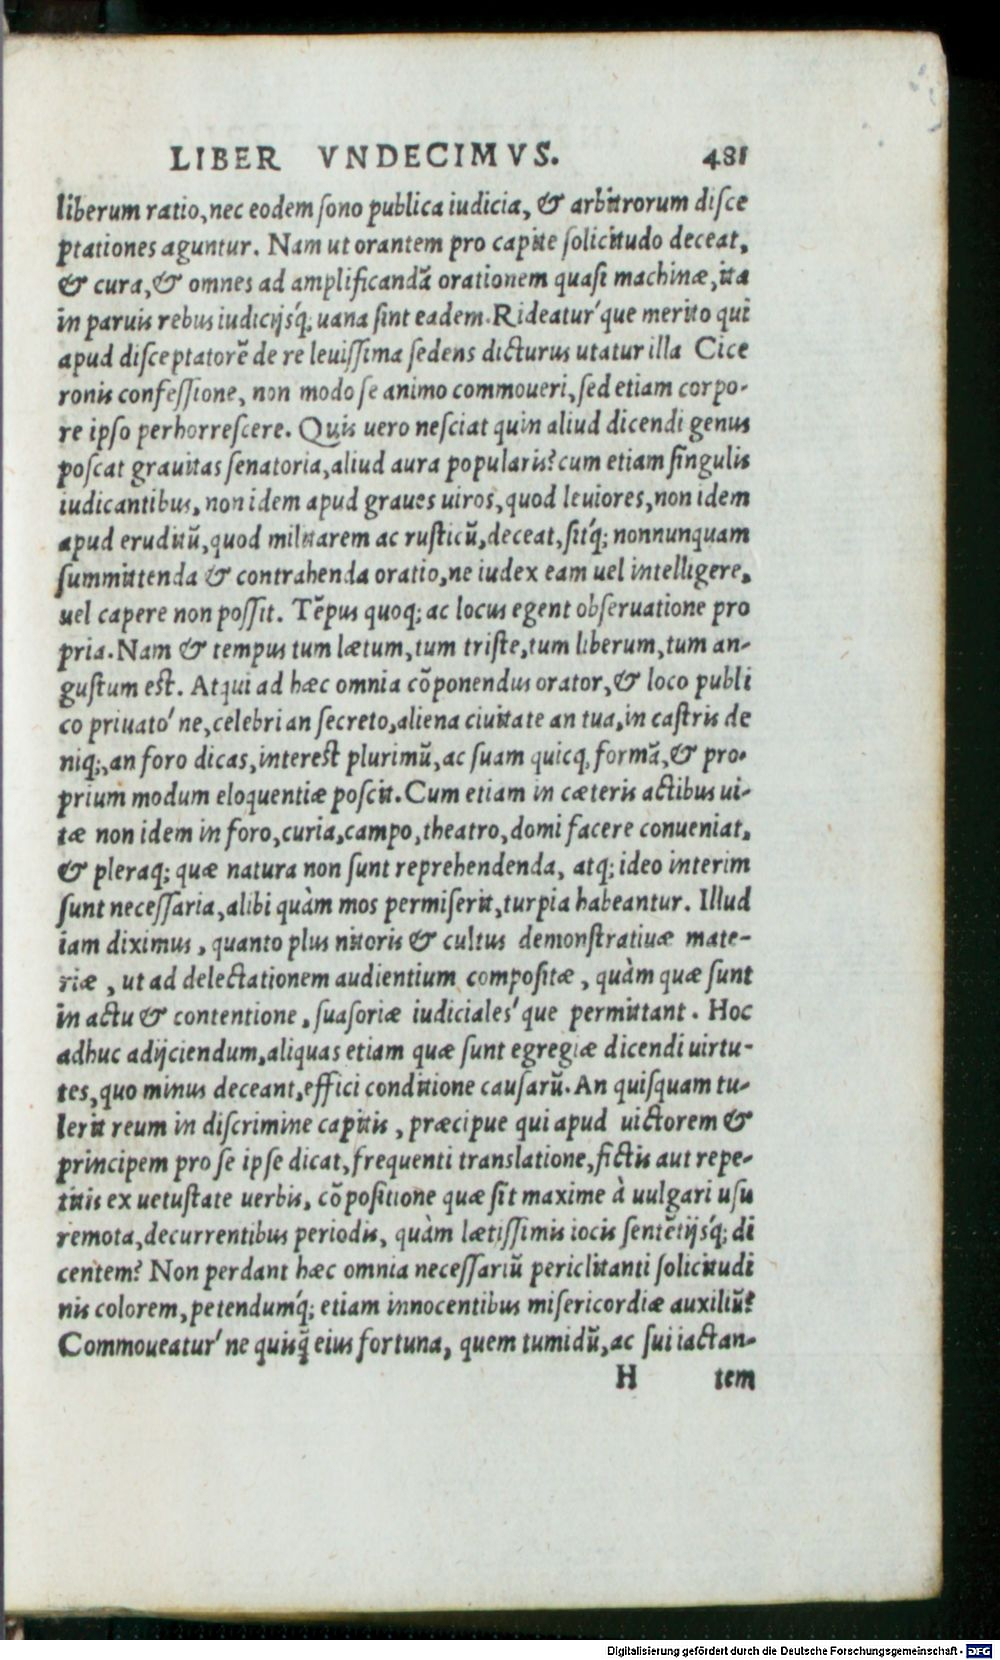 LIBER VNDECIMVS. 481
liberum ratio, nec eodem sono publica iudicia, & arbitrorum disce
ptationes aguntur. Nam ut orantem pro capite solicitudo deceat,
& cura, & omnes ad amplificandã orationem quasi machinæ, ita
in paruis rebus iudicijsq́; uana sint eadem. Rideatur´que merito qui
apud disceptatorẽ de re leuissima sedens dicturus utatur illa Cice
ronis confessione, non modo se animo commoueri, sed etiam corpo-
re ipso perhorrescere. Quis uero nesciat quin aliud dicendi genus
poscat grauitas senatoria, aliud aura popularis? cum etiam singulis
iudicantibus, non idem apud graues uiros, quod leuiores, non idem
apud eruditũ, quod militarem ac rusticũ, deceat, sitq́; nonnunquam
summittenda & contrahenda oratio, ne iudex eam uel intelligere,
uel capere non possit. Tẽpus quoq; ac locus egent obseruatione pro
pria. Nam & tempus tum lætum, tum triste, tum liberum, tum an-
gustum est. Atqui ad hæc omnia cõponendus orator, & loco publi
co priuato´ne, celebri an secreto, aliena ciuitate an tua, in castris de
niq;, an foro dicas, interest plurimũ, ac suam quicq, formã, & pro-
prium modum eloquentiæ poscit. Cum etiam in cæteris actibus ui-
tæ non idem in foro, curia, campo, theatro, domi facere conueniat,
& pleraq; quæ natura non sunt reprehendenda, atq; ideo interim
sunt necessaria, alibi quàm mos permiserit, turpia habeantur. Illud
iam diximus, quanto plus nitoris & cultus demonstratiuæ mate-
riæ, ut ad delectationem audientium compositæ, quàm quæ sunt
in actu & contentione, suasoriæ iudiciales´que permittant. Hoc
adhuc adijciendum, aliquas etiam quæ sunt egregiæ dicendi uirtu-
tes, quo minus deceant, effici conditione causarũ. An quisquam tu-
lerit reum in discrimine capitis, præcipue qui apud uictorem &
principem pro se ipse dicat, frequenti translatione, fictis aut repe-
titis ex uetustate uerbis, cõpositione quæ sit maxime à uulgari usu
remota, decurrentibus periodis, quàm lætissimis iocis sentẽtijsq́; di
centem? Non perdant hæc omnia necessariũ periclitanti solicitudi
nis colorem, petendumq́; etiam innocentibus misericordiæ auxiliũ?
Commoueatur´ne quisq̃ eius fortuna, quem tumidũ, ac sui iactan-
H tem
Digitalisierung gefördert durch die Deutsche Forschungsgemeinschaft - DFG